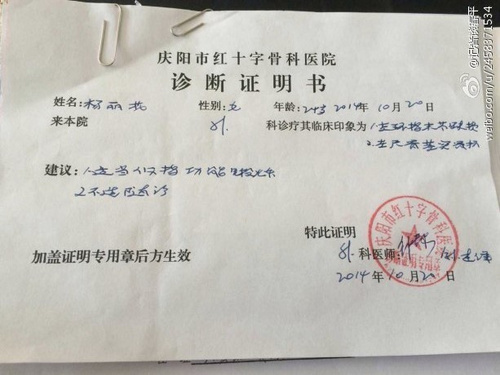 庆阳市红十字骨科医院
诊断证明书
姓名: 杨丽 性别: 女 年龄: 24岁 2014年10月20日
来本院 外 科诊疗其临床印象为 1左环指末节缺损
2左尺骨茎突骨折
建议: 1适当 功能锻炼
2不适随诊
特此证明
加盖证明专用章后方生效
外 科医师:
2014年10月20日
庆阳市红十字骨科医院
@记者祁建平
weibo.com/u/2458371534